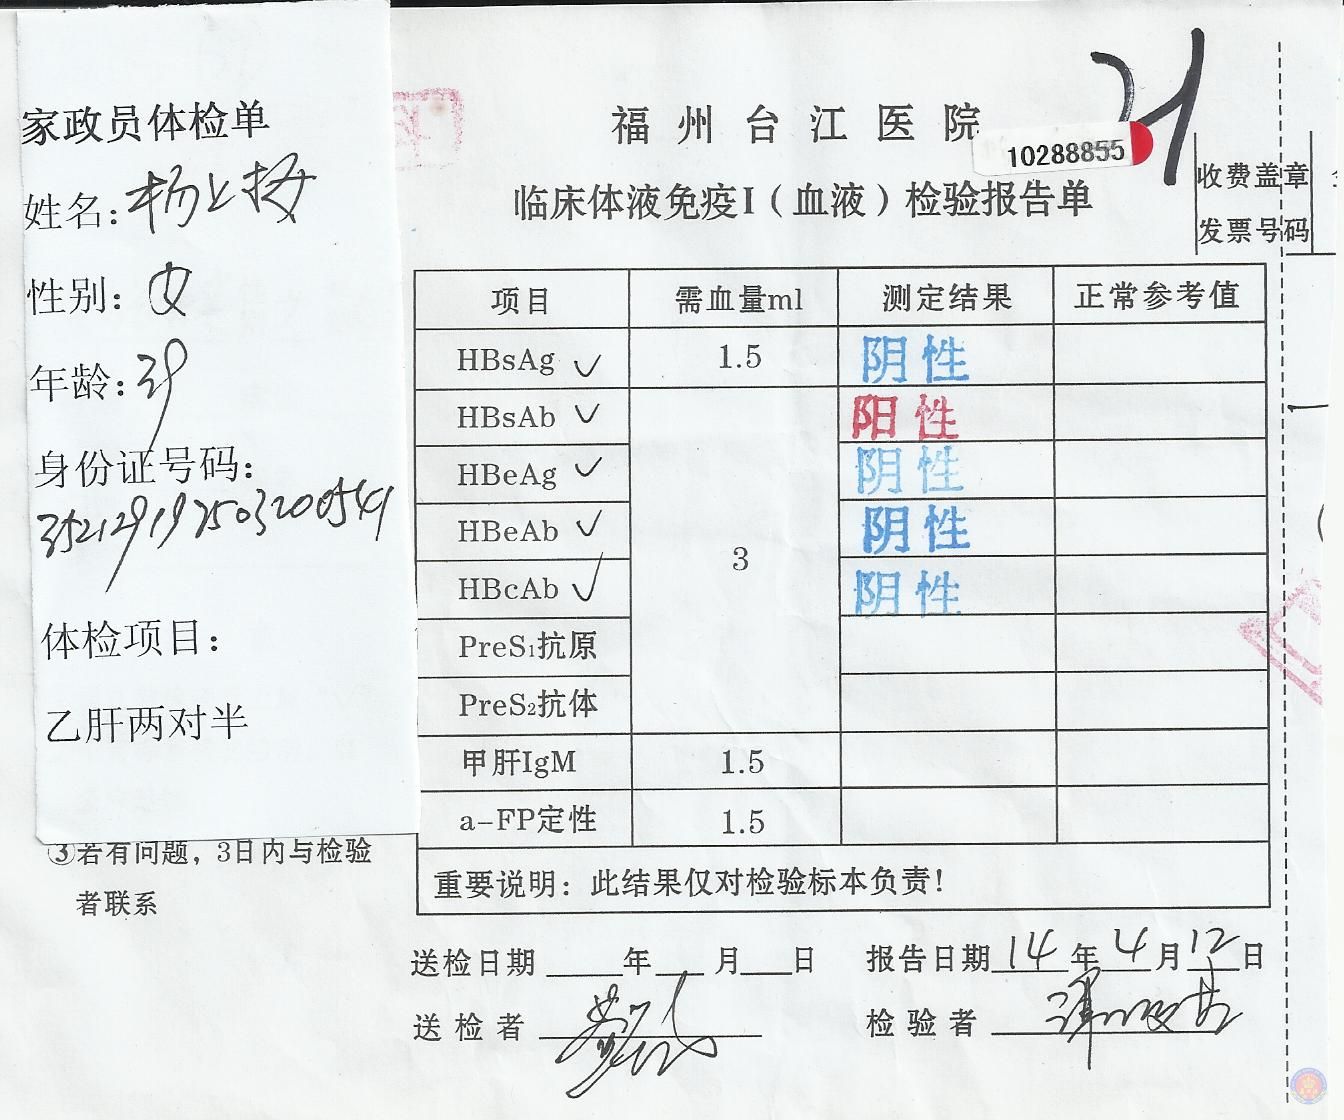 家政员体检单
姓名:
性别: 女
年龄: 39
身份证号码:
体检项目:
乙肝两对半
③若有问题，3日内与检验
者联系
福州台江医院
10288855
临床体液免疫I（血液）检验报告单
收费盖章
发票号码
项目 需血量ml 测定结果 正常参考值
HBsAg ✓ 1.5 阴性
HBsAb ✓ 阳性
HBeAg ✓ 阴性
HBeAb ✓ 3 阴性
HBcAb ✓ 阴性
PreS₁抗原
PreS₂抗体
甲肝IgM 1.5
a-FP定性 1.5
重要说明：此结果仅对检验标本负责！
送检日期____年___月___日 报告日期 14 年 4 月 12 日
送检者 检验者